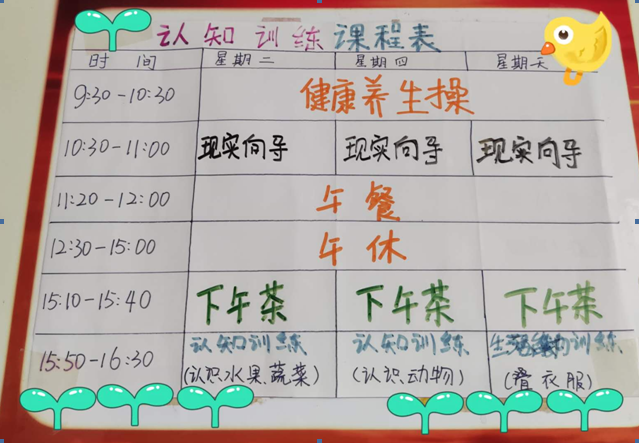 认知训练课程表
时间 星期二 星期四 星期天
9:30-10:30 健康养生操
10:30-11:00 现实向导 现实向导 现实向导
11:20-12:00 午餐
12:30-15:00 午休
15:10-15:40 下午茶 下午茶 下午茶
15:50-16:30 认知训练 认知训练 生活 训练
(认识水果蔬菜) (认识动物) (叠衣服)